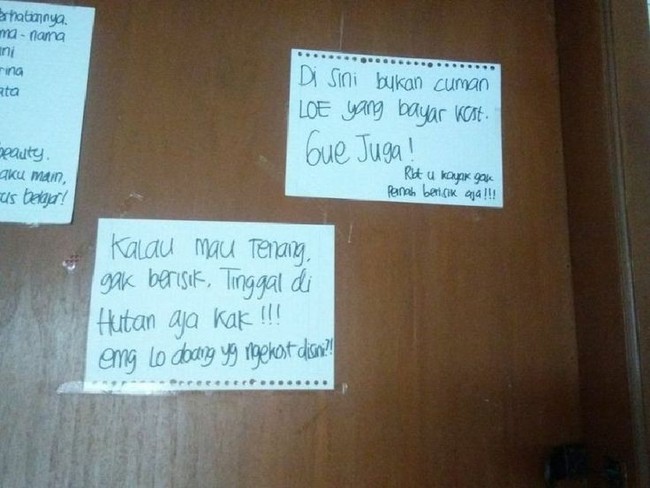 erhatiannya.
ma-nama
ini
rina
ata
beauty.
aku main,
us belajar!
Di Sini bukan cuman
LOE yang bayar kost.
Gue Juga!
Rbt u kayak gak
Pernah berisik aja!!!
Kalau mau Tenang,
gak berisik, Tinggal di
Hutan aja kak!!!
emg Lo doang yg ngekost disini?!